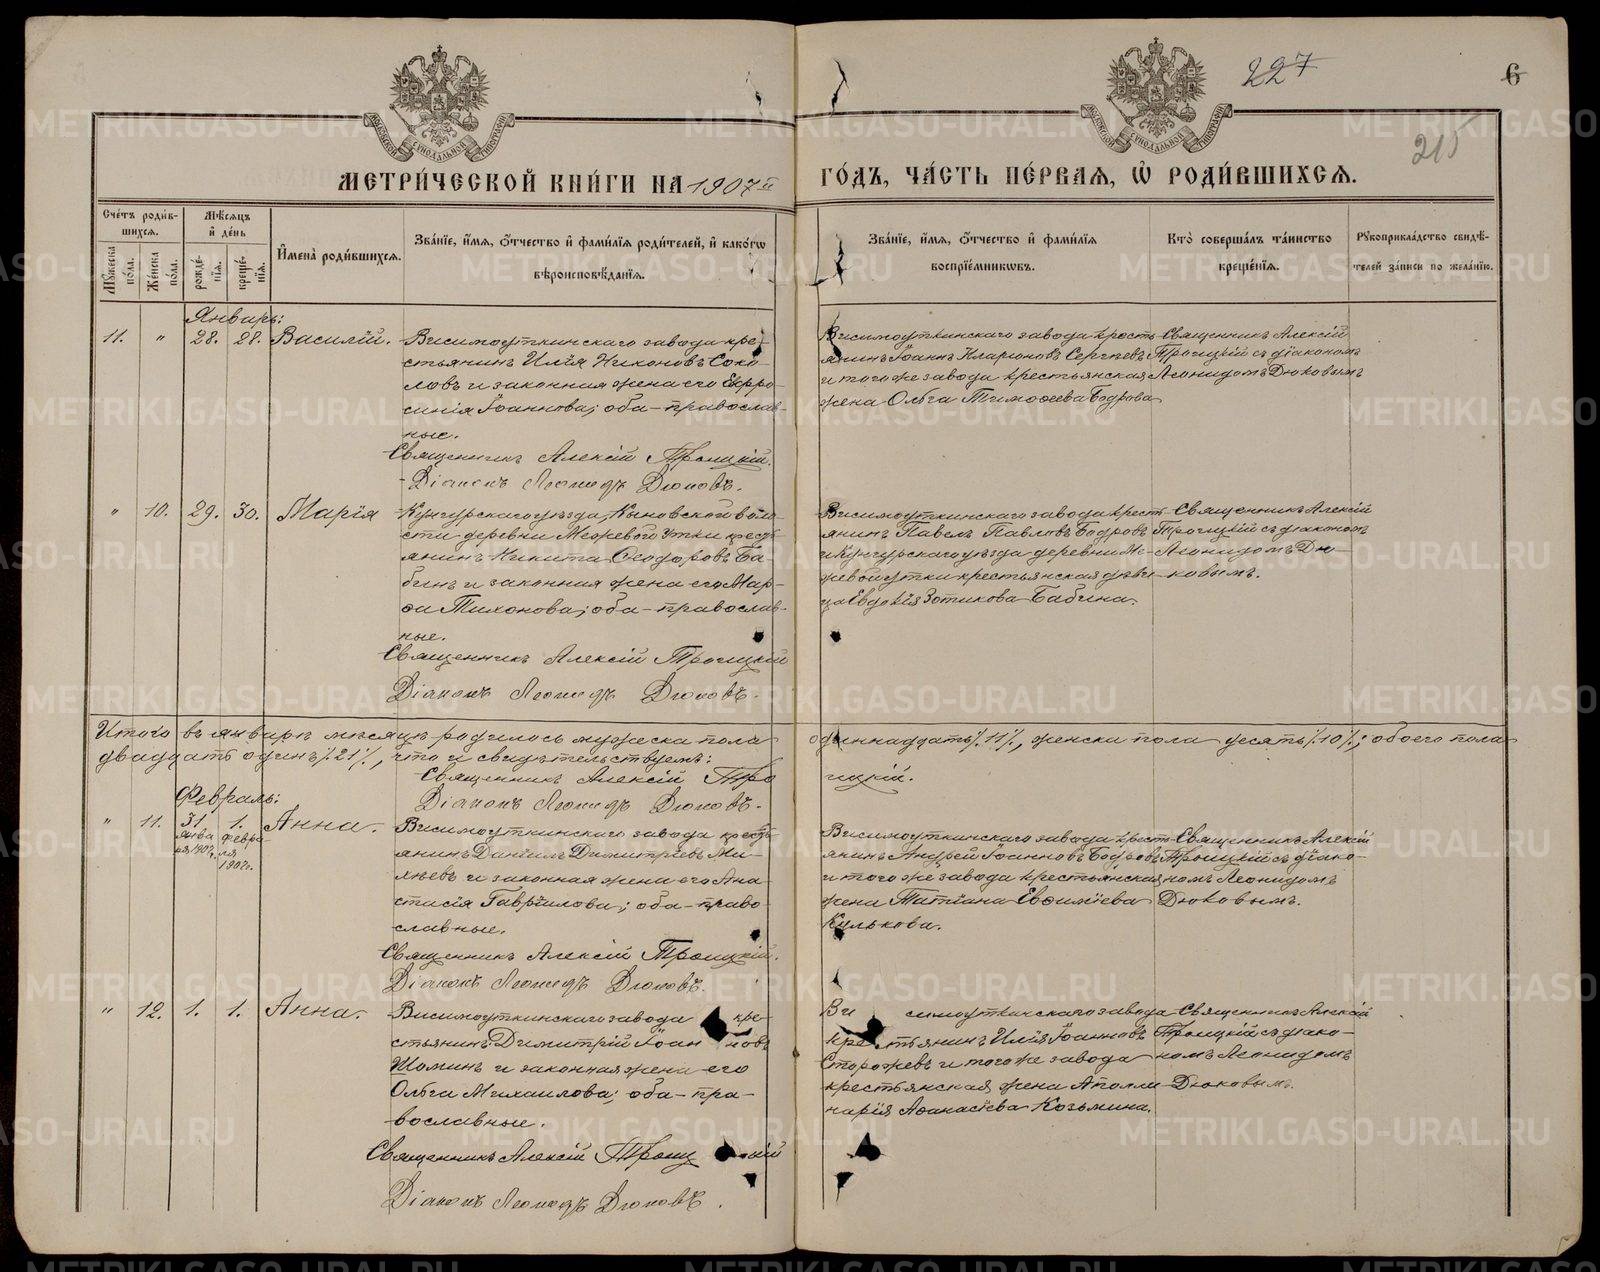 227
6
215
МЕТРИ́ЧЕСКОЙ КНИ́ГИ НА 1907й ГО́ДЪ, ЧА́СТЬ ПЕ́РВАЯ, Ѡ҆ РОДИ́ВШИХСЯ.
Сче́тъ роди́в-
шихся.
Мѣсяцъ
и҆ де́нь
Мꙋжеска
по́ла.
Же́нска
по́ла.
рожде́-
нїя.
креще́-
нїя.
И҆мена̀ роди́вшихся.
Зва́нїе, и҆́мя, ѻ҆́тчество и҆ фами́лїя роди́телей, и҆ како́гѡ
вѣроисповѣ́данїя.
Зва́нїе, и҆́мя, ѻ҆́тчество и҆ фами́лїя
воспрїе́мникѡвъ.
Кто̀ соверша́лъ та́инство
креще́нїя.
Рꙋкоприкла́дство свидѣ́-
телей за́писи по жела́нїю.
Январь:
11. " 28. 28. Василій.
Висимоуткинскаго завода кре-
стьянинъ Илія Никоновъ Соко-
ловъ и законная жена его Евфро-
синія Іоаннова; оба - православ-
ные.
Священникъ Алексій Троицкій.
Діаконъ Леонидъ Дюковъ.
Висимоуткинскаго завода кресть-
янинъ Іоаннъ Иларіоновъ Сергѣевъ
и того же завода крестьянская
жена Ольга Тимоѳеева Бодрова
Священникъ Алексій
Троицкій съ діакономъ
Леонидомъ Дюковымъ
" 10. 29. 30. Марія
Кунгурскаго уѣзда, Кыновской воло-
сти деревни Межевой Утки кресть-
янинъ Никита Ѳеодоровъ Ба-
бинъ и законная жена его Мар-
ѳа Тихонова; оба - православ-
ные.
Священникъ Алексій Троицкій
Діаконъ Леонидъ Дюковъ.
Висимоуткинскаго завода кресть-
янинъ Павелъ Павловъ Бодровъ
и Кунгурскаго уѣзда деревни Ме-
жевой утки крестьянская дѣви-
ца Евдокія Зотикова Бабина.
Священникъ Алексій
Троицкій съ діакономъ
Леонидомъ Дю-
ковымъ.
Итого въ январѣ мѣсяцѣ родилось мужеска пола одиннадцать /.11/., женска пола десять /.10/.; обоего пола
двадцать одинъ /.21/., что и свидѣтельствуемъ:
Священникъ Алексій Троицкій.
Діаконъ Леонидъ Дюковъ.
Февраль:
" 11. 31. января 1907г. 1. февраля 1907г. Анна.
Висимоуткинскаго завода кресть-
янинъ Даніилъ Димитріевъ Ми-
лѣевъ и законная жена его Ана-
стасія Гавріилова; оба - право-
славные.
Священникъ Алексій Троицкій.
Діаконъ Леонидъ Дюковъ.
Висимоуткинскаго завода кресть-
янинъ Андрей Іоанновъ Бодровъ
и того же завода крестьянская
жена Татіана Евѳиміева
Кулькова.
Священникъ Алексій
Троицкій съ діако-
номъ Леонидомъ
Дюковымъ.
" 12. 1. 1. Анна.
Висимоуткинскаго завода кре-
стьянинъ Димитрій Іоанновъ
Шоминъ и законная жена его
Ольга Михаилова; оба - пра-
вославные.
Священникъ Алексій Троицкій
Діаконъ Леонидъ Дюковъ.
Висимоуткинскаго завода
крестьянинъ Илія Іоанновъ
Сторожевъ и того же завода
крестьянская жена Аполли-
нарія Аѳанасіева Козьмина.
Священникъ Алексій
Троицкій съ діако-
номъ Леонидомъ
Дюковымъ.
METRIKI.GASO-URAL.RU